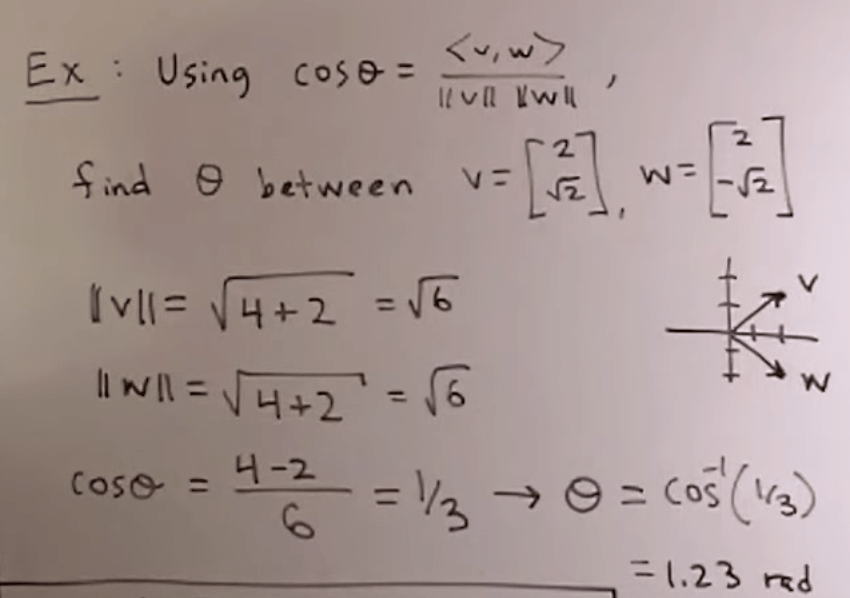 Ex : Using cosθ = <v, w> / ||v|| ||w|| ,
find θ between v = [2 √2] , w = [2 -√2]
||v|| = √4+2 = √6
v
||w|| = √4+2 = √6
w
cosθ = 4-2 / 6 = 1/3 → θ = cos⁻¹(1/3)
= 1.23 rad